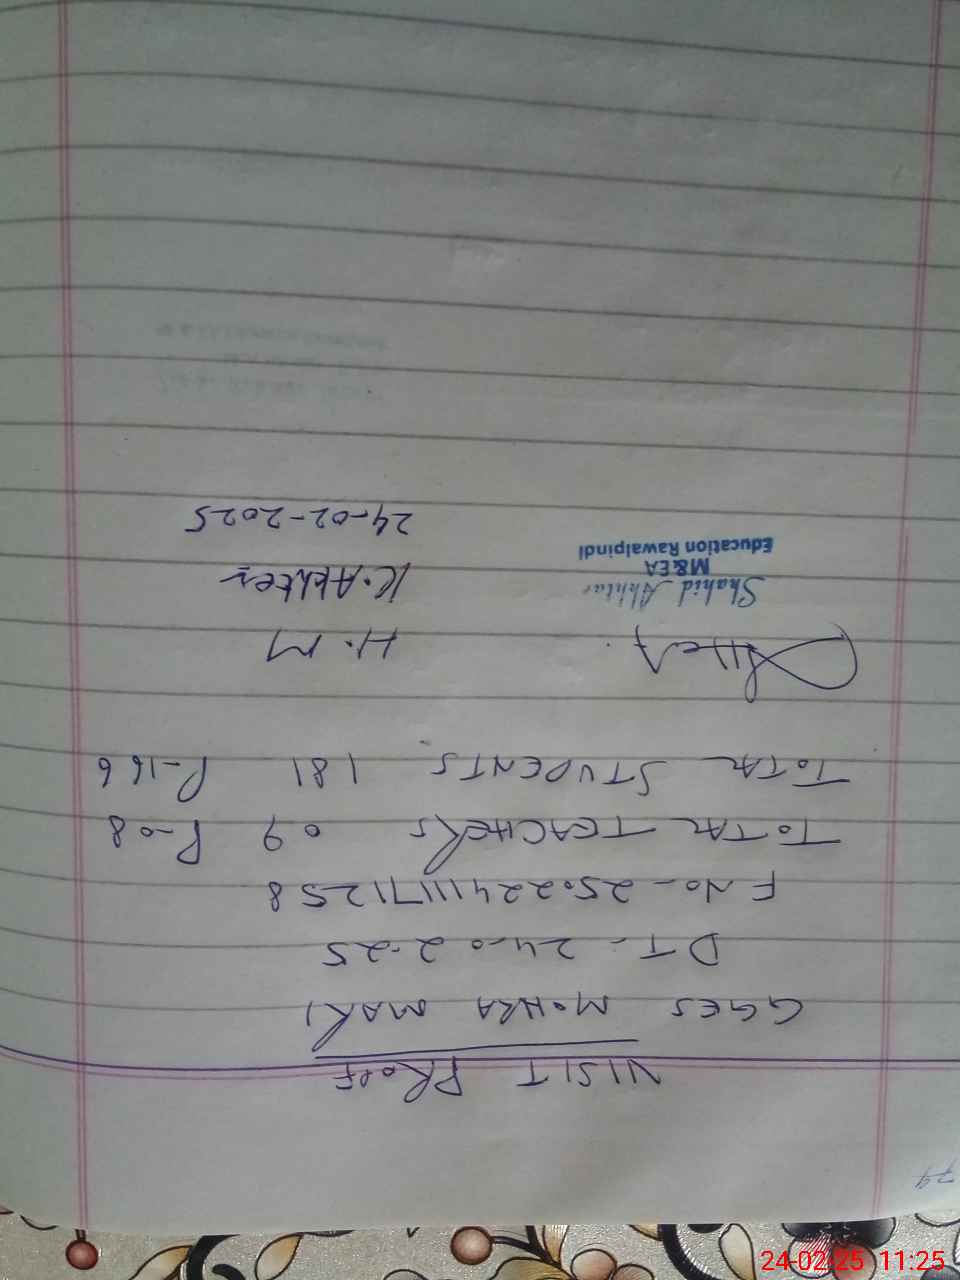 74
VISIT PROOF
GGES MOHRA MARI
DT- 24-02-25
F No- 25022411171258
TOTAL TEACHERS 09 P-08
TOTAL STUDENTS 181 P-166
H.M
Shahid Akhtar K.Akhter
M&EA
Education Rawalpindi 24-02-2025
24-02-25 11:25